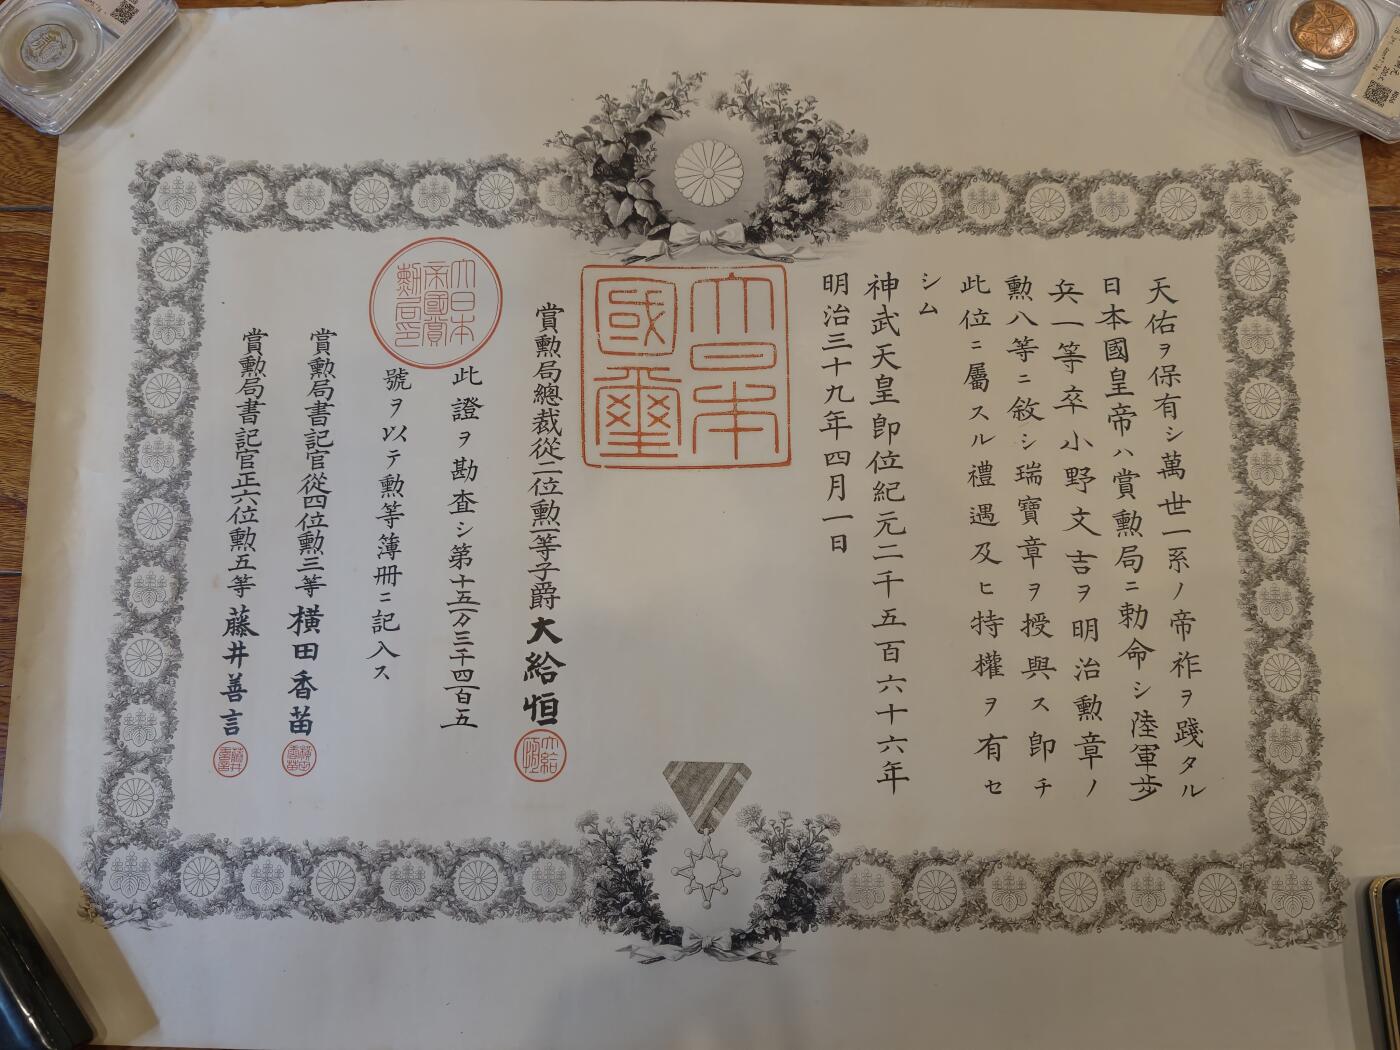 天佑ヲ保有シ萬世一系ノ帝祚ヲ踐タル
日本國皇帝ハ賞勲局ニ勅命シ陸軍歩
兵一等卒小野文吉ヲ明治勲章ノ
勲八等ニ敘シ瑞寶章ヲ授與ス卽チ
此位ニ屬スル禮遇及ヒ特權ヲ有セ
シム
神武天皇卽位紀元二千五百六十六年
明治三十九年四月一日
大日本
國璽
賞勲局總裁從二位勲一等子爵大給恒
大給
恒
大日本
帝國賞
勲局印
此證ヲ勘査シ第十五万三千四百五
號ヲ以テ勲等簿冊ニ記入ス
賞勲局書記官從四位勲三等橫田香苗
橫田
香苗
賞勲局書記官正六位勲五等藤井善言
藤井
善言